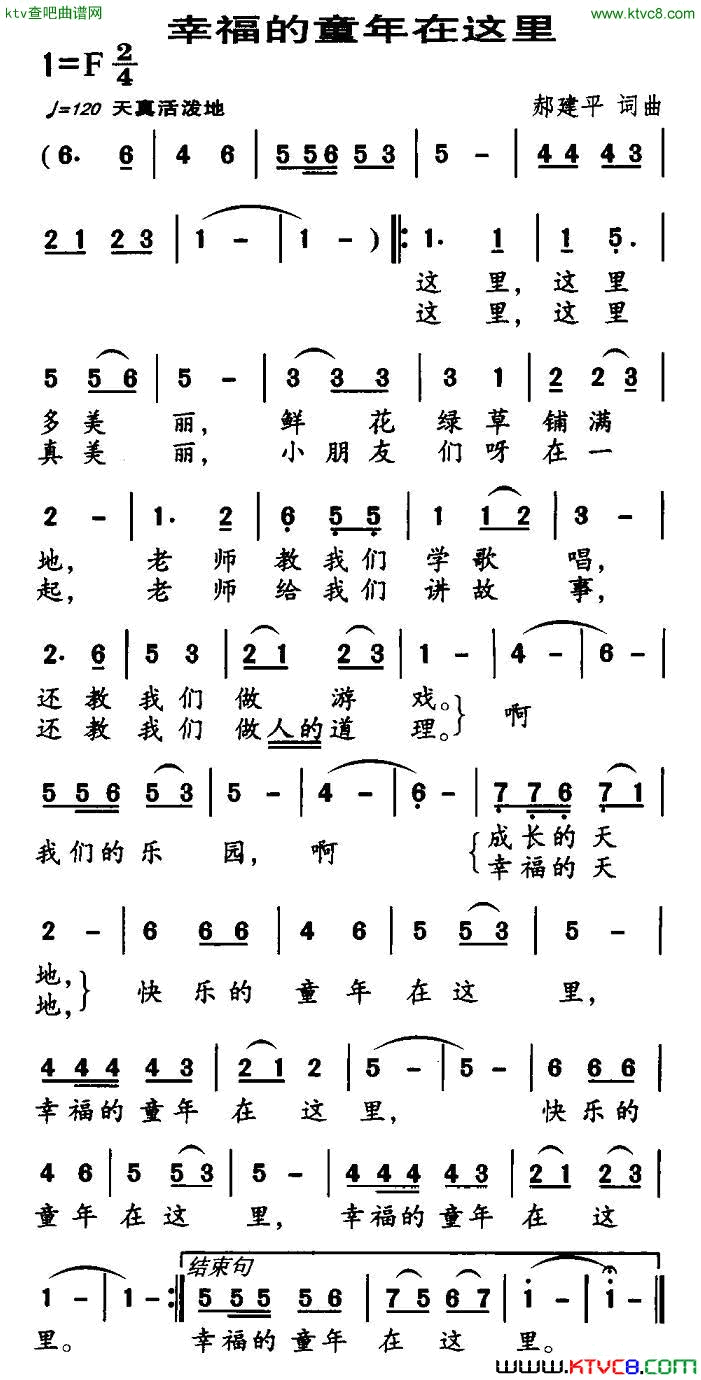 ktv查吧曲谱网
http://www.ktvc8.com/
幸福的童年在这里
1=F 2/4
♩=120 天真活泼地
郝建平 词曲
(6. 6 | 4 6 | 5 5 6 5 3 | 5 - | 4 4 4 3 |
2 1 2 3 | 1 - | 1 - ) ‖: 1. 1 | 1 5. |
这 里, 这 里
这 里, 这 里
5 5 6 | 5 - | 3 3 3 | 3 1 | 2 2 3 |
多 美 丽, 鲜 花 绿 草 铺 满
真 美 丽, 小 朋 友 们 呀 在 一
2 - | 1. 2 | 6 5 5 | 1 1 2 | 3 - |
地, 老 师 教 我 们 学 歌 唱,
起, 老 师 给 我 们 讲 故 事,
2. 6 | 5 3 | 2 1 2 3 | 1 - | 4 - | 6 - |
还 教 我 们 做 游 戏。 啊
还 教 我 们 做 人 的 道 理。
5 5 6 5 3 | 5 - | 4 - | 6 - | 7 7 6 7 1 |
我 们 的 乐 园, 啊 成 长 的 天
幸 福 的 天
2 - | 6 6 6 | 4 6 | 5 5 3 | 5 - |
地, 快 乐 的 童 年 在 这 里,
地,
4 4 4 4 3 | 2 1 2 | 5 - | 5 - | 6 6 6 |
幸 福 的 童 年 在 这 里, 快 乐 的
4 6 | 5 5 3 | 5 - | 4 4 4 4 3 | 2 1 2 3 |
童 年 在 这 里, 幸 福 的 童 年 在 这
结束句
1 - | 1 - :‖ 5 5 5 5 6 | 7 5 6 7 | 1 - | 1 - ‖
里。 幸 福 的 童 年 在 这 里。
www.KTVC8.com